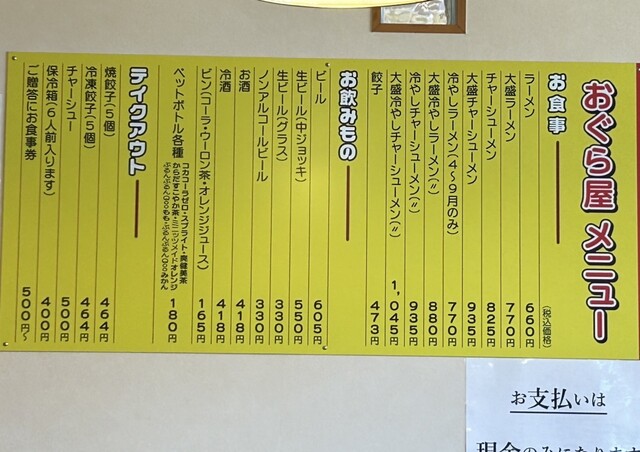 おぐら屋 メニュー
お食事
(税込価格)
ラーメン 660円
大盛ラーメン 770円
チャーシューメン 825円
大盛チャーシューメン 935円
冷やしラーメン(4～9月のみ) 770円
大盛冷やしラーメン(〃) 880円
冷やしチャーシューメン(〃) 935円
大盛冷やしチャーシューメン(〃) 1,045円
餃子 473円
お飲みもの
ビール 605円
生ビール(中ジョッキ) 550円
生ビール(グラス) 330円
ノンアルコールビール 330円
お酒 418円
冷酒 418円
ビン(コーラ・ウーロン茶・オレンジジュース) 165円
ペットボトル各種 180円
コカコーラゼロ・スプライト・爽健美茶
からだすこやか茶・ミニッツメイドオレンジ
テイクアウト
焼餃子(5個) 464円
冷凍餃子(5個) 464円
チャーシュー 500円
保冷箱(6人前入ります) 400円
ご贈答にお食事券 500円～
お支払いは
現金のみになります